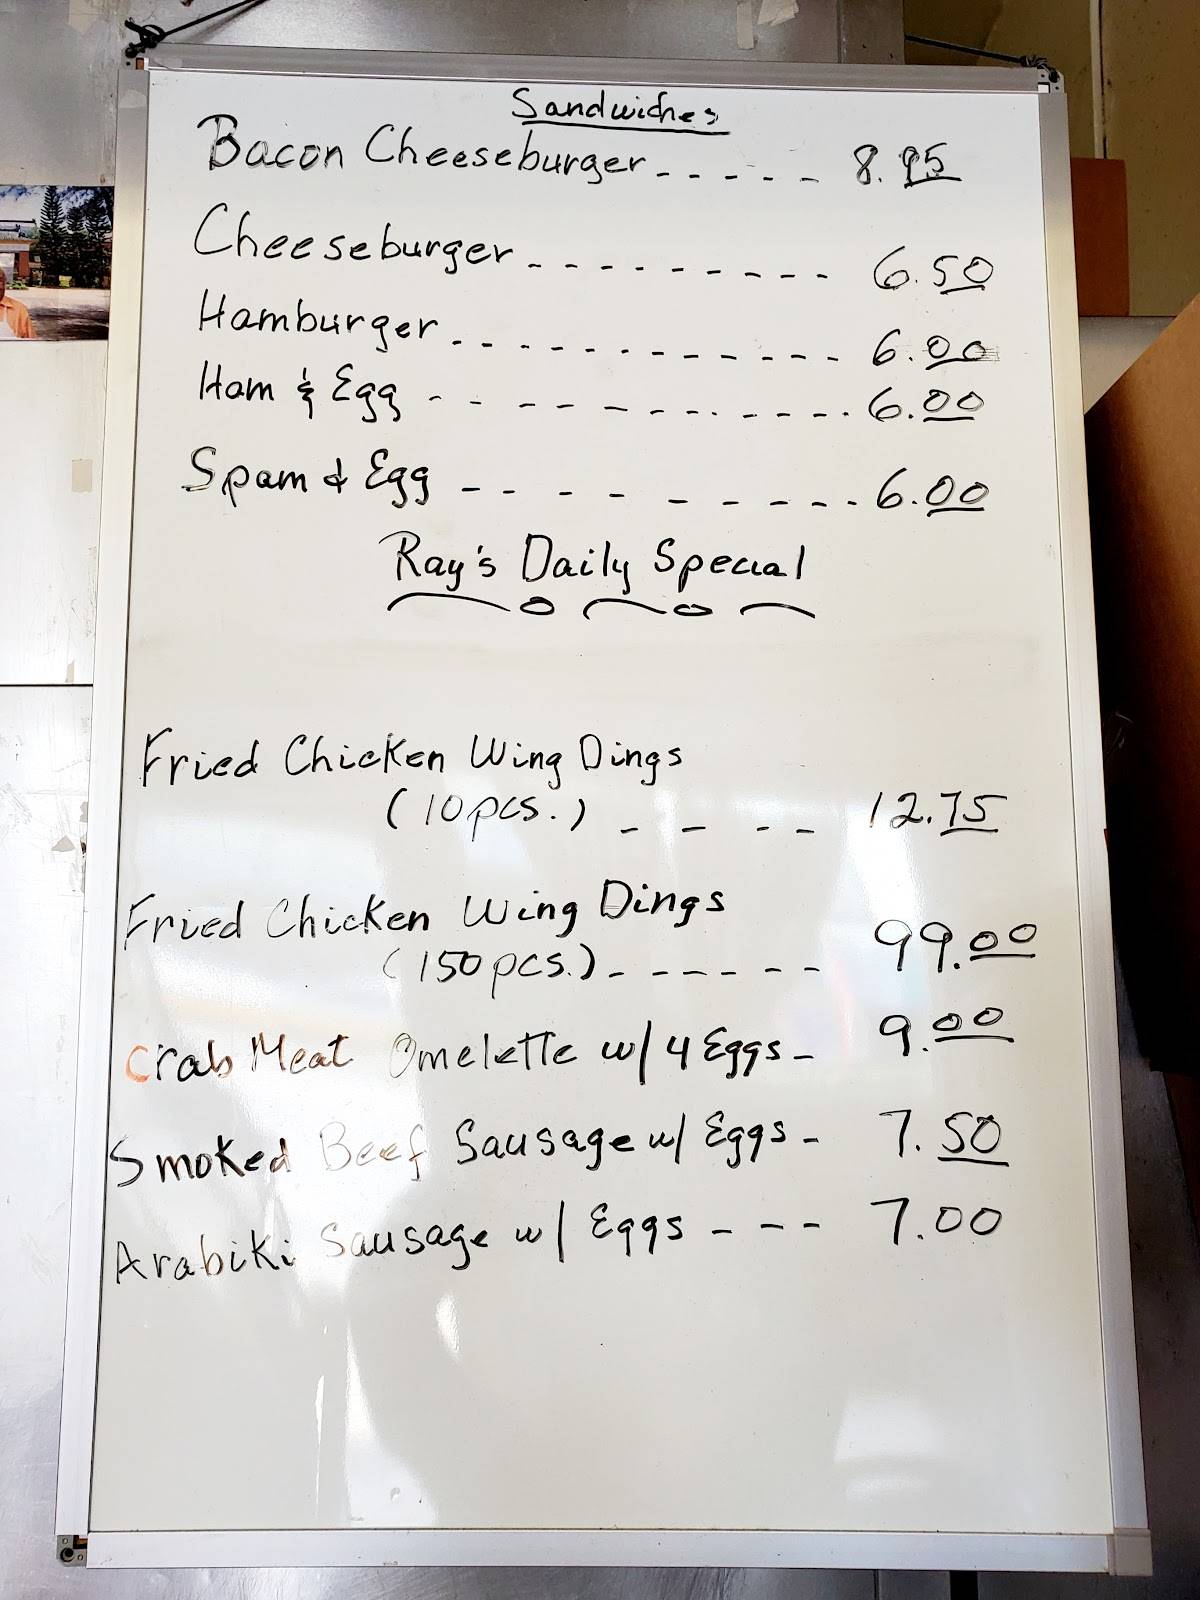 Sandwiches
Bacon Cheeseburger _ _ _ _ _ 8.95
Cheeseburger _ _ _ _ _ _ _ _ _ 6.50
Hamburger _ _ _ _ _ _ _ _ _ _ _ _ 6.00
Ham & Egg - - - - - - - - - - - 6.00
Spam & Egg - - - - - - - - - - 6.00
Ray's Daily Special
Fried Chicken Wing Dings
(10 pcs.) _ _ _ _ 12.75
Fried Chicken Wing Dings
(150 pcs.) - - - - - - 99.00
Crab Meat Omelette w/ 4 Eggs - 9.00
Smoked Beef Sausage w/ Eggs - 7.50
Arabiki Sausage w/ Eggs - - - 7.00